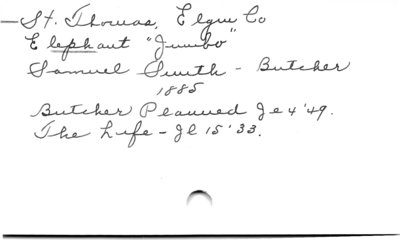 — St. Thomas, Elgin Co
Elephant "Jumbo"
Samuel Smith - Butcher
1885
Butcher Planned Je 4 '49.
The Life - Jl 15 '33.